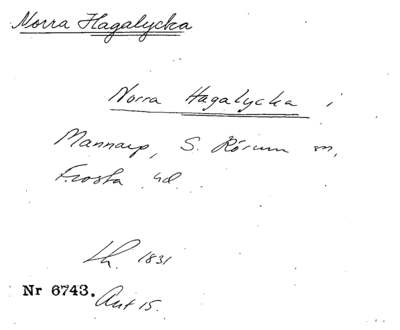 Norra Hagalycka
Norra Hagalycka i
Mannarp, S. Rörum sn,
Frosta hd.
Lh. 1831
Nr 6743. Aut 15.